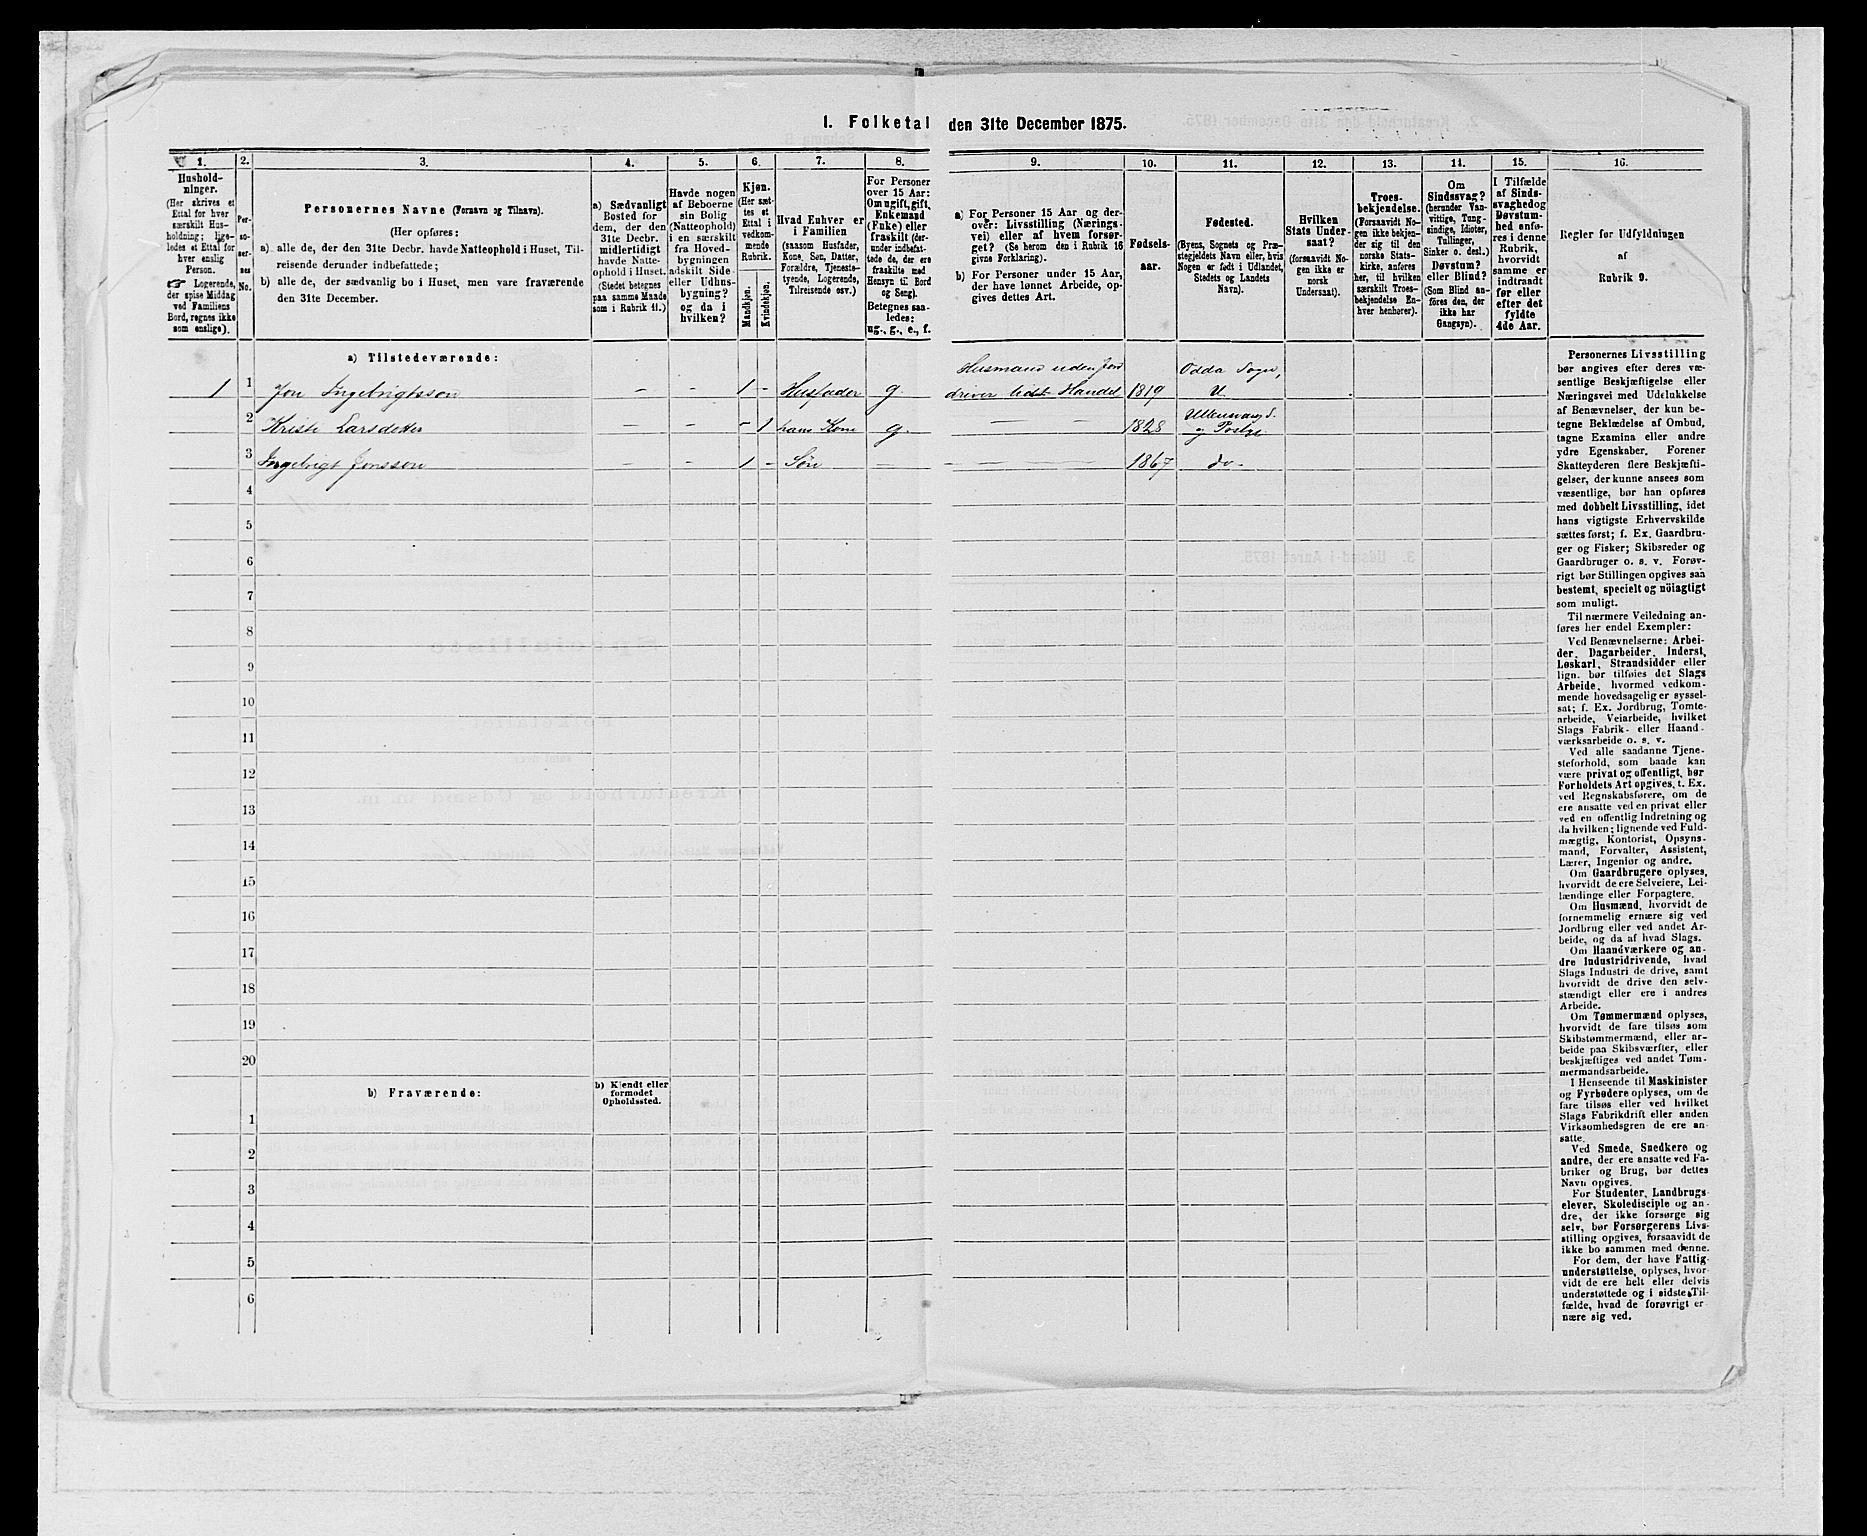 I. Folketal den 31te December 1875.
1.
2.
3.
4.
5.
6.
7.
8.
9.
10.
11.
12.
13.
14.
15.
16.
Hushold-
ninger.
(Her skrives et
Ettal for hver
særskilt Hus-
holdning; lige-
ledes et Ettal for
hver enslig
Person.
☞ Logerende,
der spise Middag
ved Familiens
Bord, regnes ikke
som enslige).
Per-
so-
ner-
nes
No.
Personernes Navne (Fornavn og Tilnavn).
(Her opføres:
a). alle de, der den 31te Decbr. havde Natteophold i Huset, Til-
reisende derunder indbefattede;
b) alle de, der sædvanlig bo i Huset, men vare fraværende
den 31te December.
a) Sædvanligt
Bosted for
dem, der den
31te Decbr.
midlertidigt
havde Natte-
ophold i Huset.
(Stedet betegnes
paa samme Maade
som i Rubrik 11.)
Havde nogen
af Beboerne
sin Bolig
(Natteophold)
i en særskilt
fra Hoved-
bygningen
adskilt Side-
eller Udhus-
bygning?
og da i
hvilken?
Kjøn.
(Her sæt-
tes et
Ettal i
vedkom-
mende
Rubrik.
Mandkjøn.
Kvindekjøn.
Hvad Enhver er
i Familien
(saasom Husfader,
Kone, Søn, Datter,
Forældre, Tjeneste-
tyende, Logerende,
Tilreisende osv.)
For Personer
over 15 Aar:
Om ugift, gift,
Enkemand
(Enke) eller
fraskilt (der-
unde indbefat-
tede de, der ere
fraskilte med
Hensyn til Bord
og Seng).
Betegnes saa-
ledes:
ug., g., e., f.
a) For Personer 15 Aar og der-
over: Livsstilling (Nærings-
vei) eller af hvem forsør-
get? (Se herom den i Rubrik 16
givne Forklaring).
b) For Personer under 15 Aar,
der have lønnet Arbeide, op-
gives dettes Art.
Fødsels-
aar.
Fødested.
(Byens, Sognets og Præ-
stegjeldets Navn eller, hvis
Nogen er født i Udlandet,
Stedets og Landets
Navn).
Hvilken
Stats Under-
saat?
(forsaavidt No-
gen ikke er
norsk
Undersaat).
Troes-
bekjendelse.
(Forsaavidt No-
gen ikke bekjen-
der sig til den
norske Stats-
kirke, anføres
her, til hvilken
særskilt Troes-
bekjendelse En-
hver henhører).
Om
Sindssvag?
(herunder Van-
vittige, Tung-
sindige, Idioter,
Tullinger,
Sinker o. desl.)
Døvstum?
eller Blind?
(Som Blind an-
føres den, der
ikke har
Gangsyn).
I Tilfælde
af Sinds-
svaghed og
Døvstum-
hed anfø-
res i denne
Rubrik,
hvorvidt
samme er
indtraadt
før eller
efter det
fyldte
4de Aar.
Regler før Udfyldningen
af
Rubrik 9.
a) Tilstedeværende:
1 1 Jon Ingebrigtsson – – 1 – Husfader g. Husmand uden Jord
driver lidt Handel 1819 Odda Sogn,
U.
2 Kristi Larsdotter – – – 1 hans Kone g. – – 1828 Ullensvang S.
og Præstgj.
3 Ingebrigt Jonsson – – 1 – Søn – – – – 1867 do-
4
5
6
7
8
9
10
11
12
13
14
15
16
17
18
19
20
b) Fraværende:
b) Kjendt eller
formodet
Opholdssted.
1
2
3
4
5
6
Personernes Livsstilling
bør angives efter deres væ-
sentlige Beskjæftigelse eller
Næringsvei med Udelukkelse
af Benævnelser, der kun be-
tegne Beklædelse af Ombud,
tagne Examina eller andre
ydre Egenskaber. Forener
Skatteyderen flere Beskjæfti-
gelser, der kunne ansees som
væsentlige, bør han opføres
med dobbelt Livsstilling, idet
hans vigtigste Erhvervskilde
sættes først; f. Ex. Gaardbru-
ger og Fisker; Skibsreder og
Gaardbruger o. s. v. Forøv-
rigt bør Stillingen opgives saa
bestemt, specielt og nöiagtigt
som muligt.
Til nærmere Veiledning an-
føres her endel Exempler:
Ved Benævnelserne: Arbei-
der, Dagarbeider, Inderst,
Løskarl, Strandsidder eller
lign. bør tilføies det Slags
Arbeide, hvormed vedkom-
mende hovedsagelig er syssel-
sat; f. Ex. Jordbrug, Tomte-
arbeide, Veiarbeide, hvilket
Slags Fabrik- eller Haand-
værksarbeide o. s. v.
Ved alle saadanne Tjene-
steforhold, som baade kan
være privat og offentligt, bør
Forholdets Art opgives, t. Ex.
ved Regnskabsførere, om de
ere ansatte ved en privat eller
ved en offentlig Indretning og
da hvilken; lignende ved Fuld-
mægtig, Kontorist, Opsyns-
mand, Forvalter, Assistent,
Lærer, Ingeniør og andre.
Om Gaardbrugere oplyses,
hvorvidt de ere Selveiere, Lei-
lændinge eller Forpagtere.
Om Husmænd, hvorvidt de
fornemmelig ernære sig ved
Jordbrug eller ved andet Ar-
beide, og da af hvad Slags.
Om Haandværkere og an-
dre Industridrivende, hvad
Slags Industri de drive, samt
hvorvidt de drive den selv-
stændigt eller ere i andres
Arbeide.
Om Tømmermænd oplyses,
hvorvidt de fare tilsøs som
Skibstømmermænd, eller ar-
beide paa Skibsværfter, eller
beskjæftiges ved andet Tøm-
mermandsarbeide.
I Henseende til Maskinister
og Fyrbødere oplyses, om de
fare tilsøs eller ved hvilket
Slags Fabrikdrift eller anden
Virksomhedsgren de ere an-
satte.
Ved Smede, Snedkere og
andre, der ere ansatte ved Fa-
briker og Brug, bør dettes
Navn opgives.
For Studenter, Landbrugs-
elever, Skoledisciple og an-
dre, der ikke forsørge sig
selv, bør Forsørgerens Livs-
stilling opgives, forsaavidt de
ikke bo sammen med denne.
For dem, der have Fattig-
understøttelse, oplyses, hvor-
vidt de ere helt eller delvis
understøttede og i sidste Til-
fælde, hvad de forøvrigt er-
nære sig ved.